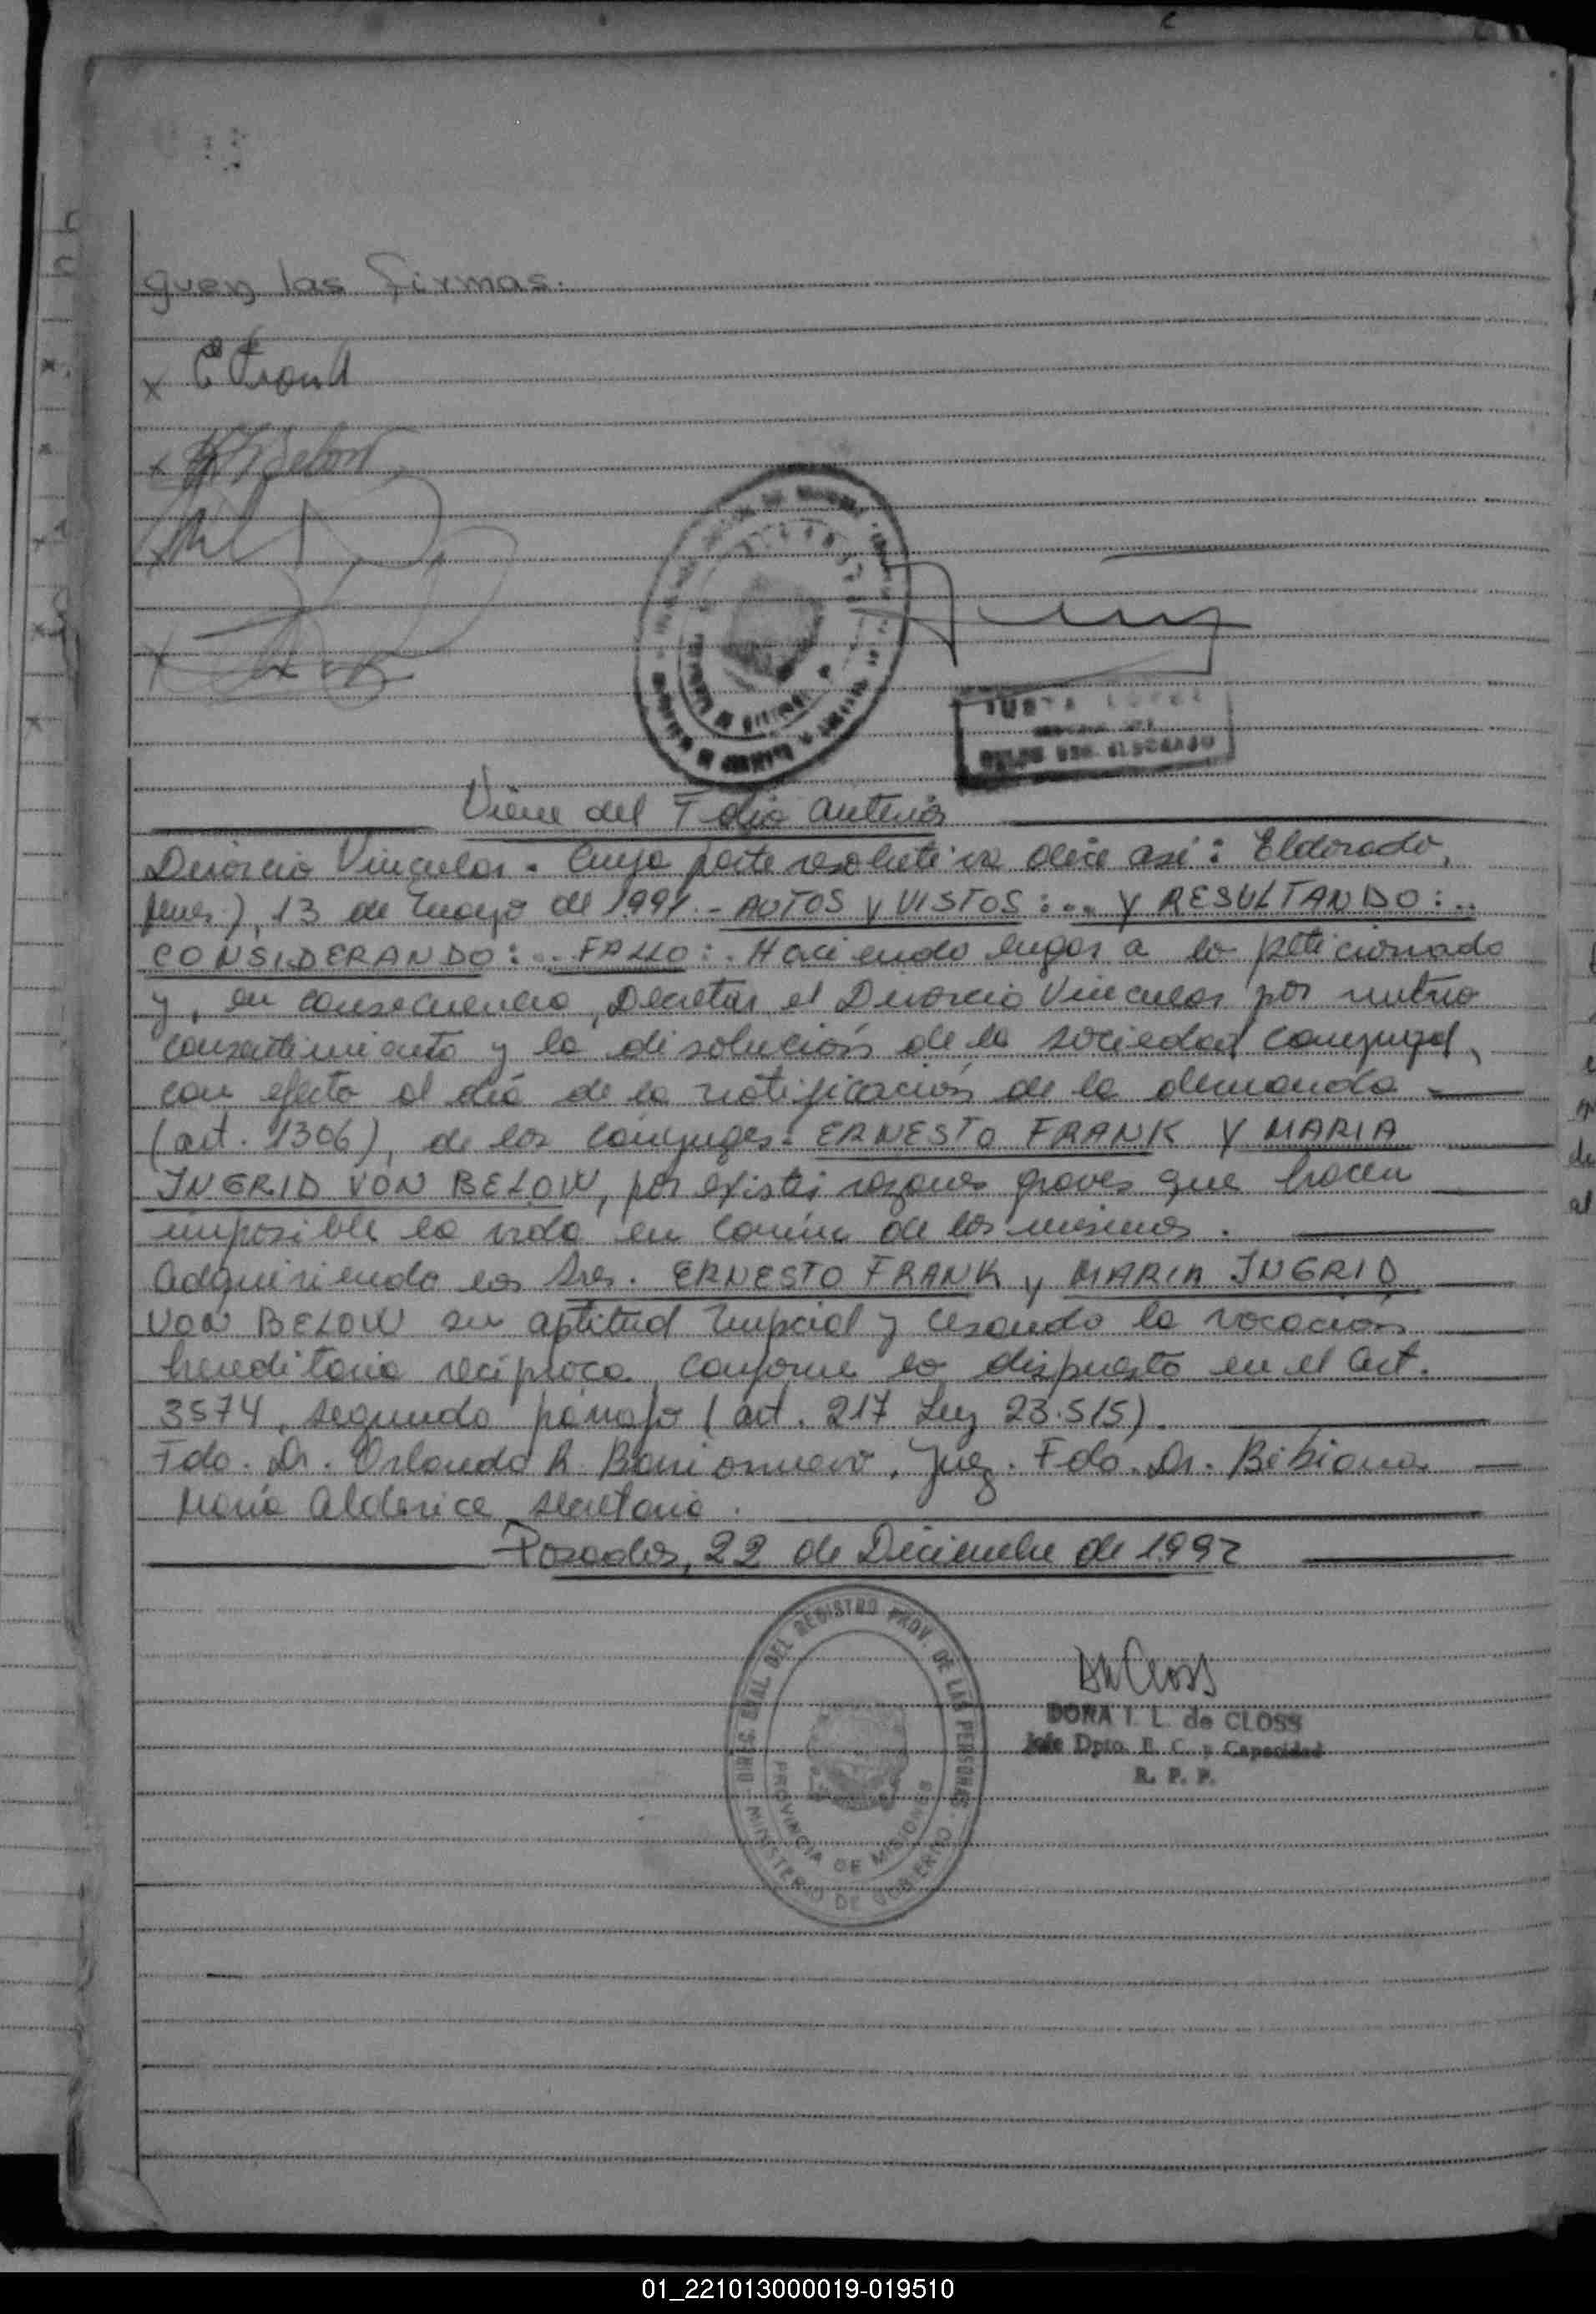 guen las firmas.
x E Frank
x
x
x
JUSTA LOPEZ
Viene del Folio anterior
Divorcio Vincular. Cuya parte resolutiva dice asi: Eldorado,
13 de Mayo de 1991.- AUTOS y VISTOS:... y RESULTANDO:..
CONSIDERANDO:... FALLO:. Haciendo lugar a lo peticionado
y, en consecuencia, Decretar el Divorcio Vincular por mutuo
consentimiento y la disolución de la sociedad conyugal,
con efecto al día de la notificación de la demanda
(art. 1306), de los conyuges. ERNESTO FRANK Y MARIA
INGRID VON BELOW, por existir razones graves que hacen
imposible la vida en común de los mismos.
Adquiriendo los Sres. ERNESTO FRANK y MARIA INGRID
VON BELOW su aptitud nupcial y cesando la vocación
hereditaria recíproca conforme lo dispuesto en el art.
3574, segundo párrafo (art. 217 Ley 23.515).
Fdo. Dr. Orlando R. Barrionuevo. Juez. Fdo. Dr. Bibiana
María Alderice secretaria.
Posadas, 22 de Diciembre de 1992
DIREC. GRAL DEL REGISTRO PROV. DE LAS PERSONAS
PROVINCIA DE MISIONES
MINISTERIO DE GOBIERNO
DORA I. L. de CLOSS
Jefe Dpto. E. C. y Capacidad
R. P. P.
01_221013000019-019510